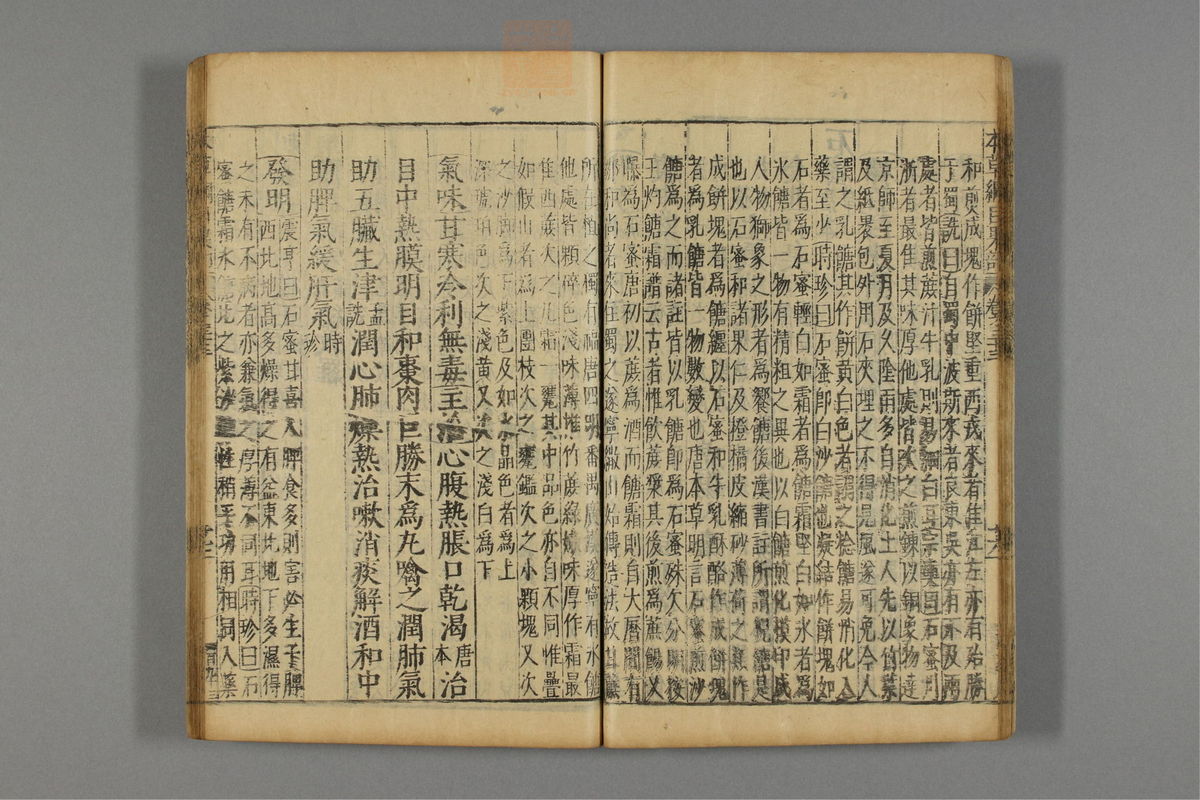 和煎成塊作餅堅重西戎來者佳江左亦有殆勝
于蜀詵曰自蜀中波斯來者良東吳亦有不及兩
處者皆煎蔗汁牛乳則易細白耳宗奭曰石蜜川
浙者最佳其味厚他處皆次之煎鍊以銅象物達
京師至夏月及久陰雨多自消化土人先以竹葉
及紙褁包外用石灰埋之不得見風遂可免今人
謂之乳餹其作餅黃白色者謂之捻餹易消化入
藥至少時珍曰石蜜卽白沙餹也凝結作餅塊如
石者爲石蜜輕白如霜者爲餹霜堅白如氷者爲
氷餹皆一物有精粗之異也以白餹煎化模印成
人物獅象之形者爲饗餹後漢書註所謂猊餹是
也以石蜜和諸果仁及橙橘皮縮砂薄荷之類作
成餅塊者爲餹纒以石蜜和牛乳酥酪作成餅塊
者爲乳餹皆一物數變也唐本草明言石蜜煎沙
餹爲之而諸註皆以乳餹卽爲石蜜殊欠分明按
王灼餹霜譜云古者惟飲蔗漿其後煎爲蔗餳又
曝爲石蜜唐初以蔗爲酒而餹霜則自大曆間有
鄒和尚者來住蜀之遂寧繖山始傳造法故甘蔗
所在植之獨有福唐四明番禺廣漢遂寧有氷餹
他處皆顆碎色淺味薄惟竹蔗綠嫩味厚作霜最
佳西蔗次之凡霜一甕其中品色亦自不同惟疊
如假山者爲上團枝次之甕鑑次之小顆塊又次
之沙脚爲下紫色及如水晶色者爲上
深琥珀色次之淺黃又次之淺白爲下
氣味甘寒冷利無毒主治心腹熱脹口乾渴唐本治
目中熱膜明目和棗肉巨勝末爲丸噙之潤肺氣
助五臟生津孟詵潤心肺燥熱治嗽消痰解酒和中
助脾氣緩肝氣時珍
發明震亨曰石蜜甘喜入脾食多則害必生于脾
西北地高多燥得之有益東南地下多濕得
之未有不病者亦兼氣之厚薄不同耳時珍曰石
蜜餹霜氷餹比之紫沙餹性稍平功用相同入藥